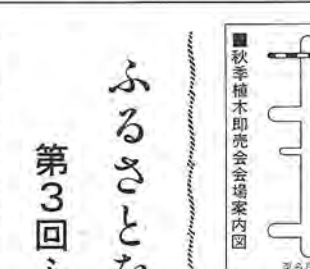 ■秋季植木即売会会場案内図
ふるさとな
第3回